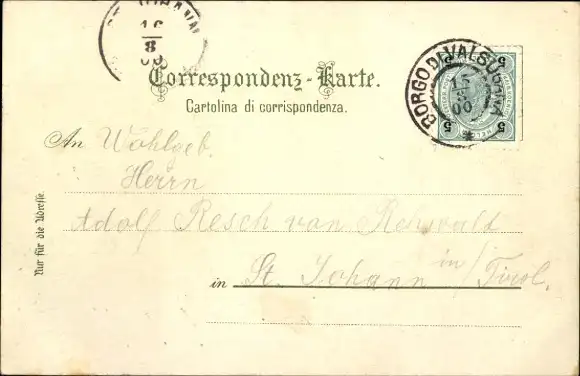 16
8
00
Correspondenz-Karte.
Cartolina di corrispondenza.
BORGO DI VALSUGANA
15
00
5 5
5 5
An Wohlgeb.
Herrn
Adolf Resch von
in St. Johann in/Tirol.
Nur für die Adresse.